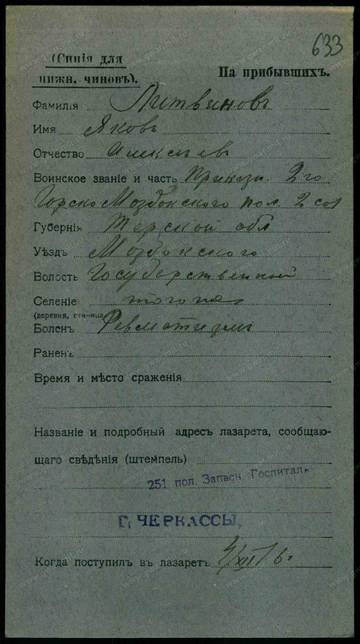 633
(Синія для
нижн. чиновъ).
На прибывшихъ.
Фамилія Литвиновъ
Имя Яковъ
Отчество Алексѣев
Воинское званіе и часть 2го
Горско Моздокского пол. 2 сот
Губернія Терской обл
Уѣздъ Моздокского
Волость Государственной
Селеніе
(деревня, станица)
Боленъ Ревматизмъ
Раненъ
Время и мѣсто сраженія
Названіе и подробный адресъ лазарета, сообщаю-
щаго свѣдѣнія (штемпель)
251 пол. Запасн. Госпиталь
Г. ЧЕРКАССЫ,
Когда поступил въ лазаретъ